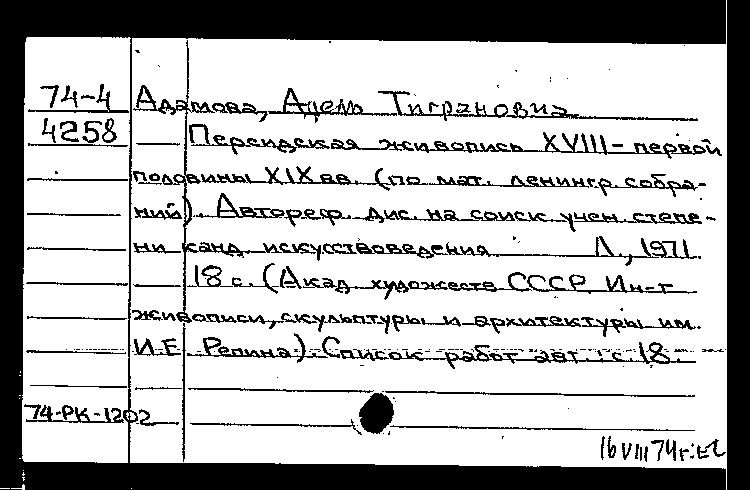 74-4 Адамова, Адель Тиграновна
4258 Персидская живопись XVIII - первой
половины XIX вв. (по мат. ленингр. собра-
ний). Автореф. дис. на соиск. учен. степе-
ни канд. искусствоведения Л., 1971.
18 с. (Акад. художеств СССР. Ин-т
живописи, скульптуры и архитектуры им.
И.Е. Репина). Список работ авт.: с. 18.
74-РК-1202
16 VIII 74 г.